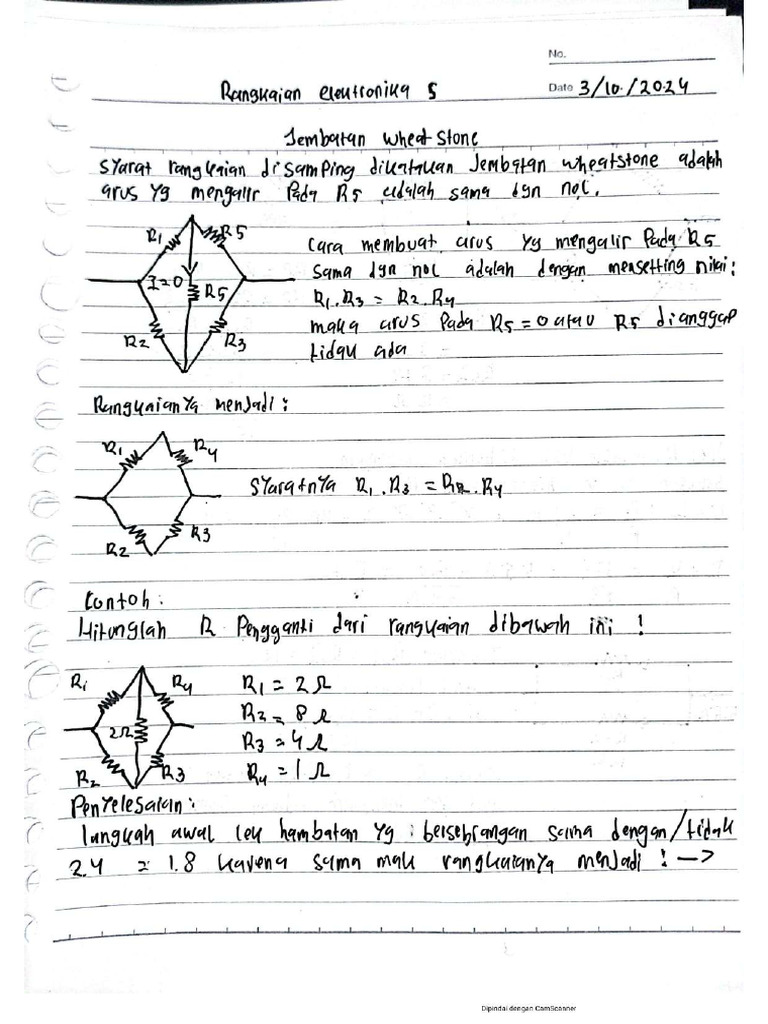 No.
Rangkaian elektronika 5
Date 3/10./2024
Jembatan Wheatstone
Syarat rangkaian disamping dikatakan Jembatan wheatstone adalah
arus yg mengalir Pada R5 adalah sama dgn nol.
R1 R5
I=0 R5
R2 R3
Cara membuat arus yg mengalir Pada R5
sama dgn nol adalah dengan mensetting nilai:
R1.R3 = R2.R4
maka arus Pada R5 = 0 atau R5 dianggap
tidak ada
Rangkaianya menjadi:
R1 R4
R2 R3
Syaratnya R1.R3 = R2.R4
Contoh:
Hitunglah R Pengganti dari rangkaian dibawah ini !
R1 R4
2Ω
R2 R3
R1 = 2 Ω
R2 = 8 Ω
R3 = 4 Ω
R4 = 1 Ω
Penyelesaian:
langkah awal cek hambatan yg : bersebrangan sama dengan/tidak
2.4 = 1.8 karena sama mak rangkaianya menjadi ! →
Dipindai dengan CamScanner